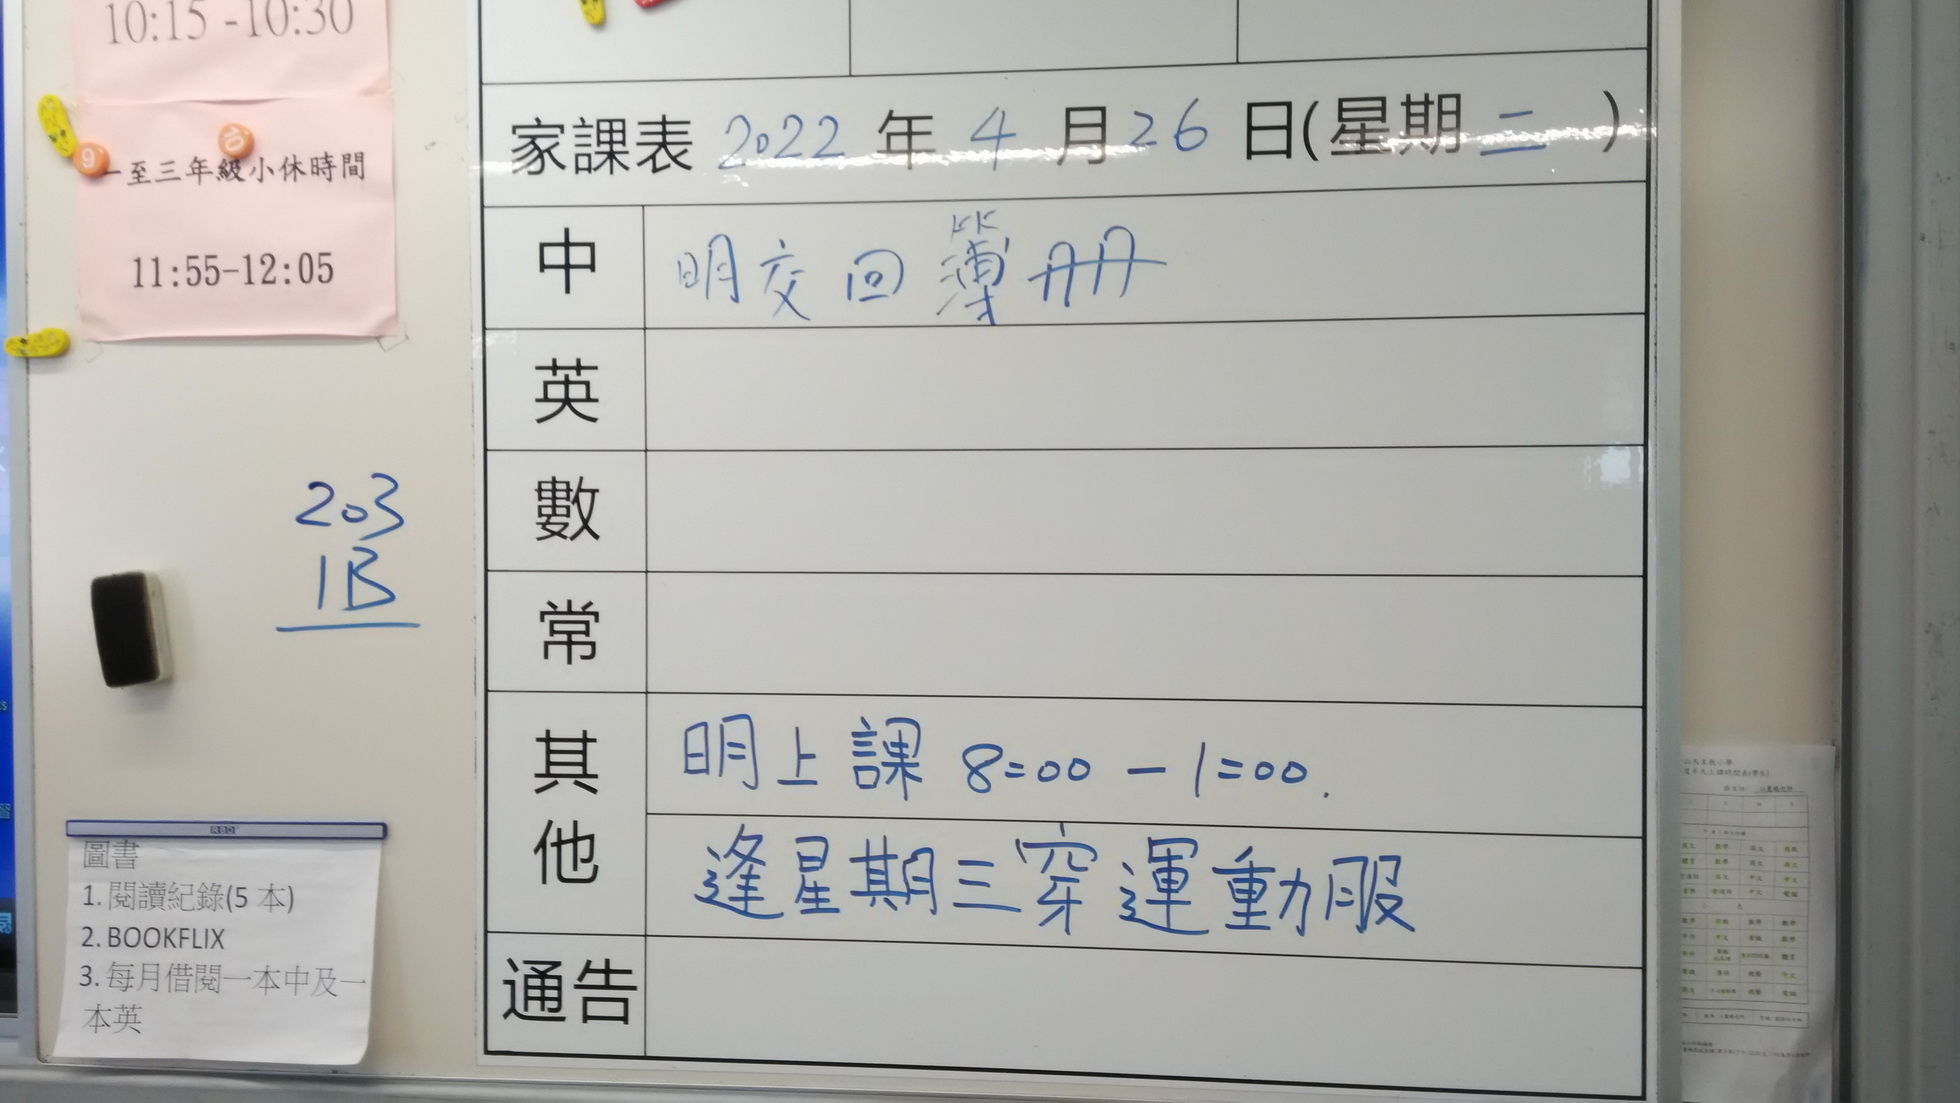 10:15 -10:30
一至三年級小休時間
11:55-12:05
家課表 2022 年 4 月 26 日(星期 二 )
中 明交回簿冊
英
數
常
其他 明上課 8=00 - 1=00.
逢星期三穿運動服
通告
203
1B
圖書
1. 閱讀紀錄(5 本)
2. BOOKFLIX
3. 每月借閱一本中及一
本英